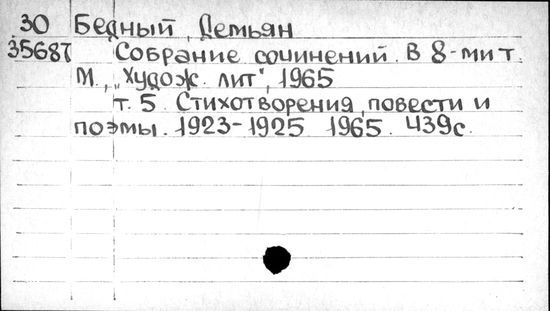 30 Бедный, Демьян
35687 Собрание сочинений. В 8-ми т.
М., „Худож. лит", 1965
т. 5. Стихотворения, повести и
поэмы. 1923-1925. 1965. 439с.